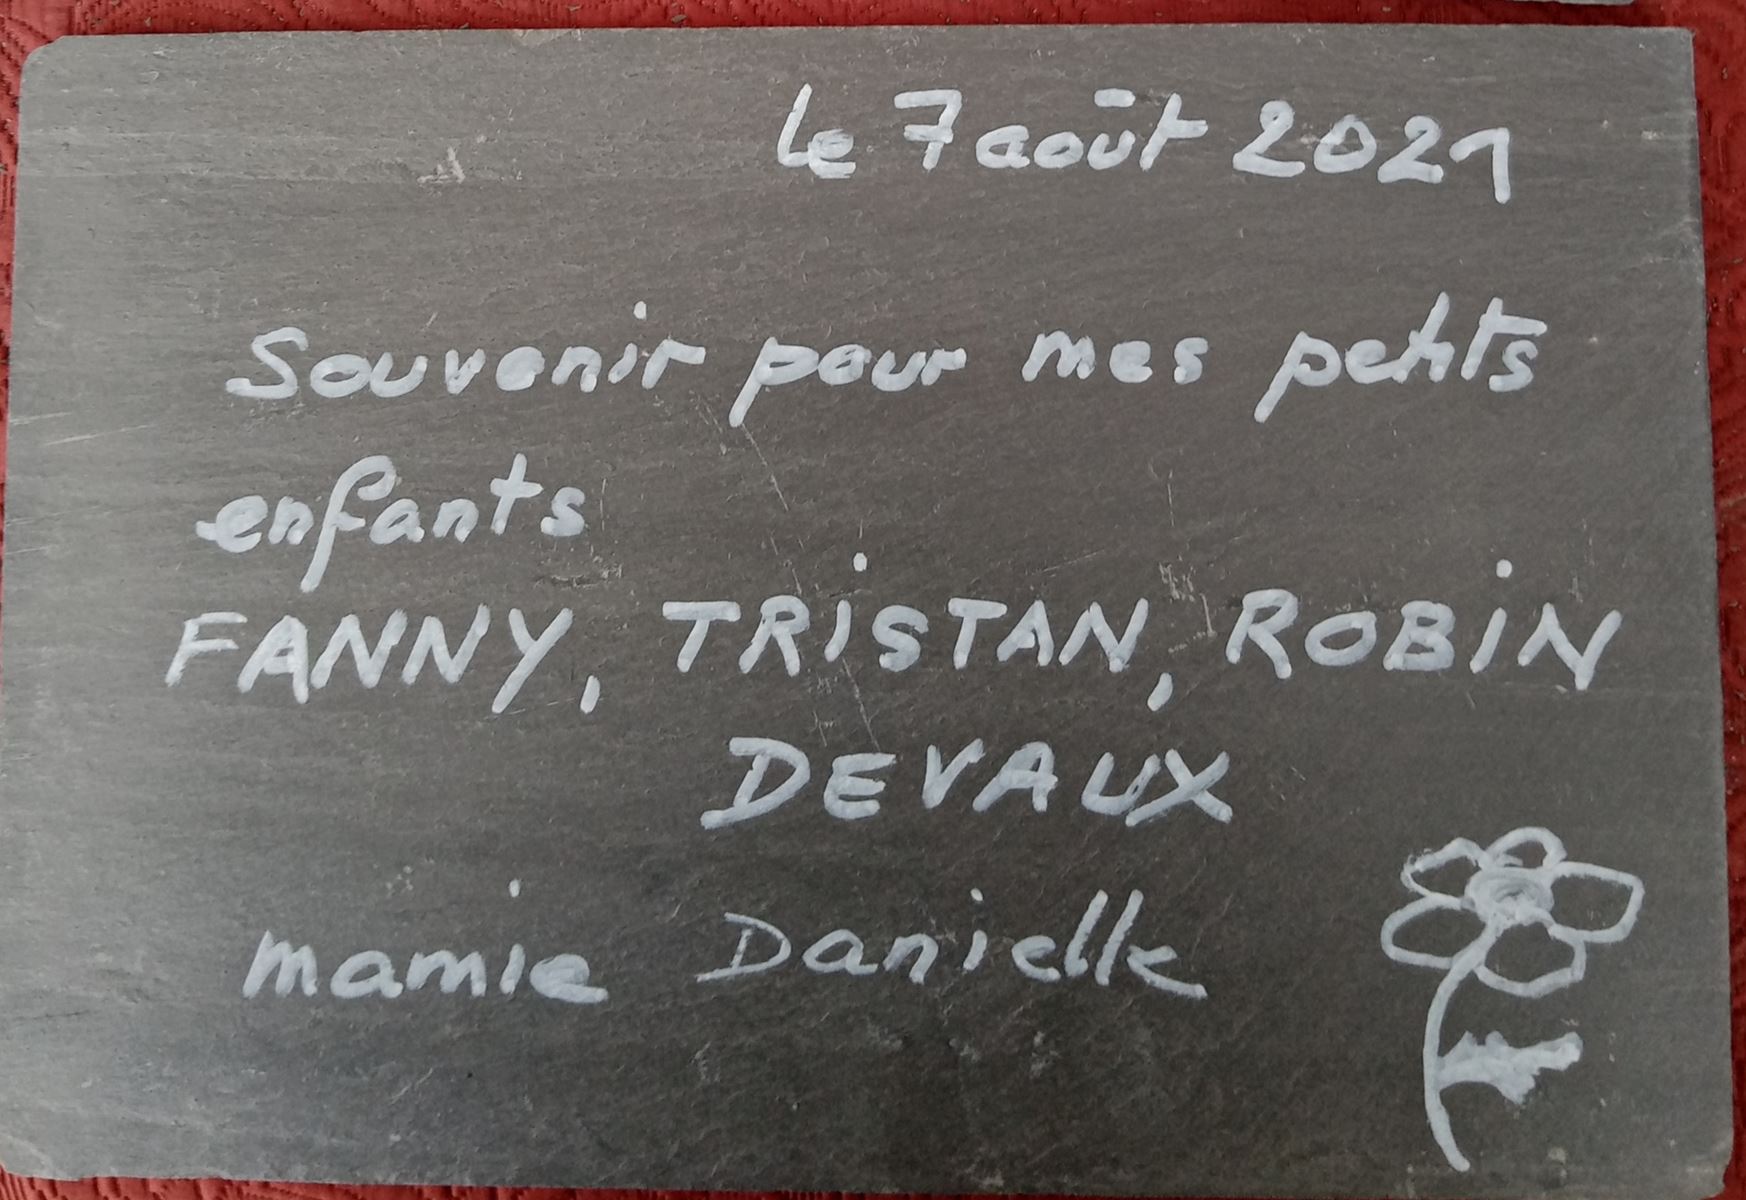 le 7 août 2021
Souvenir pour mes petits
enfants
FANNY, TRiSTAN, ROBiN
DEVAUX
mamie Danielle